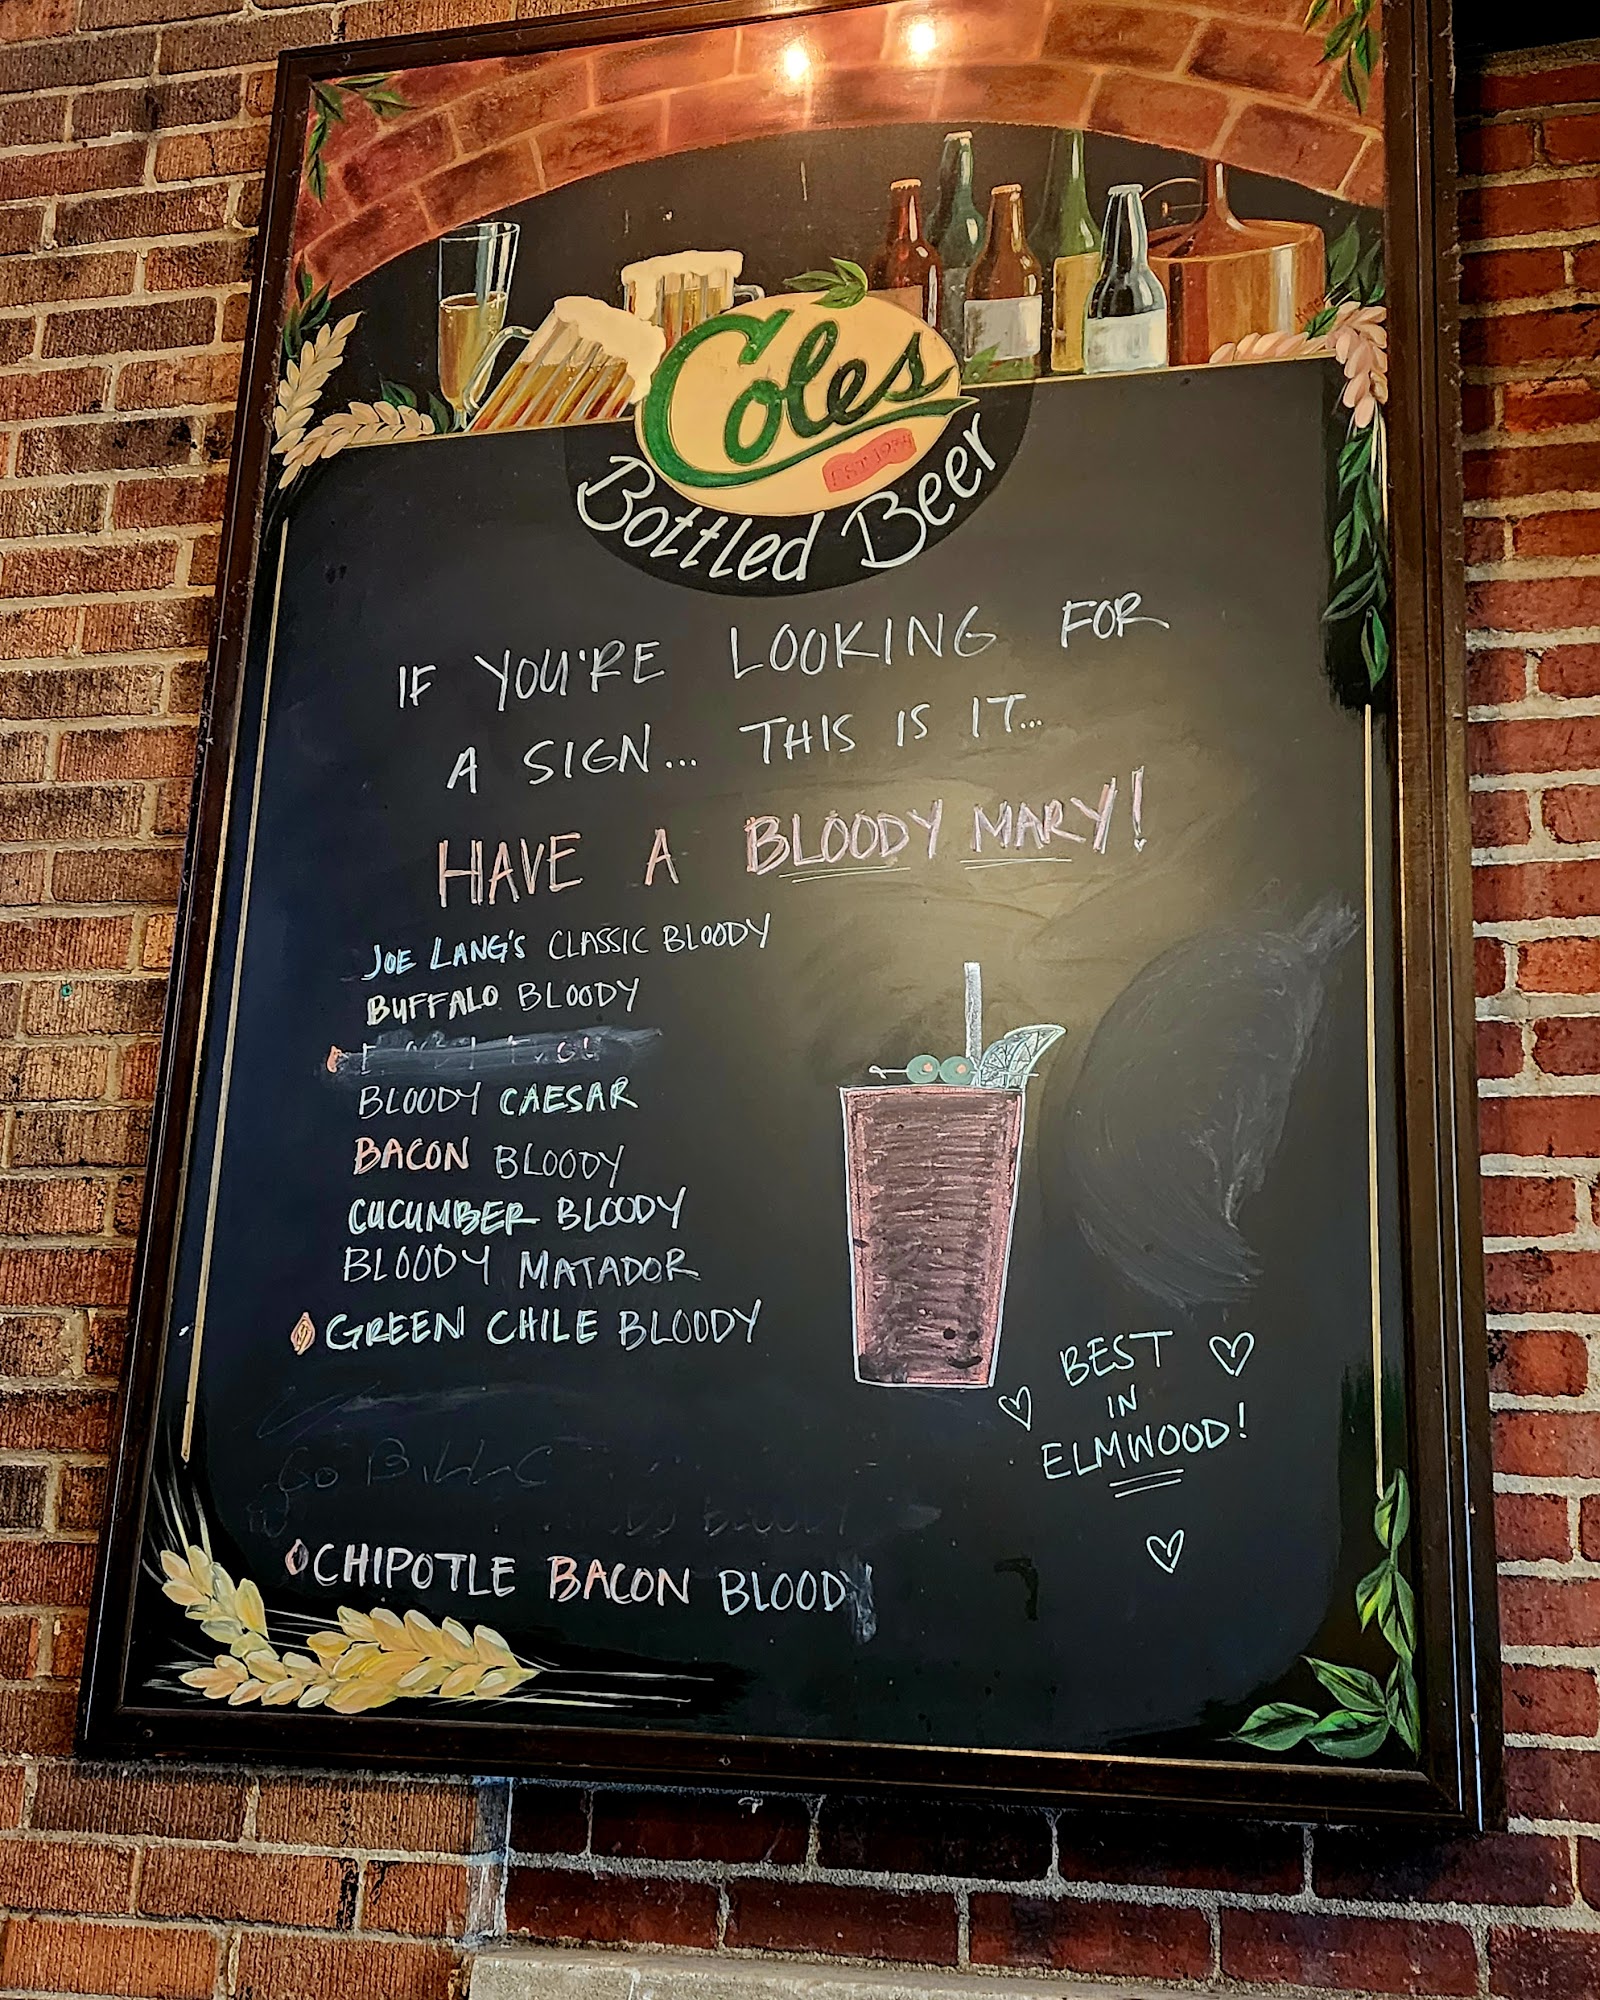 Coles
EST. 1934
Bottled Beer
IF YOU'RE LOOKING FOR
A SIGN... THIS IS IT...
HAVE A BLOODY MARY!
JOE LANG'S CLASSIC BLOODY
BUFFALO BLOODY
BLOODY CAESAR
BACON BLOODY
CUCUMBER BLOODY
BLOODY MATADOR
GREEN CHILE BLOODY
BEST
IN
ELMWOOD!
GO BILLS
CHIPOTLE BACON BLOODY